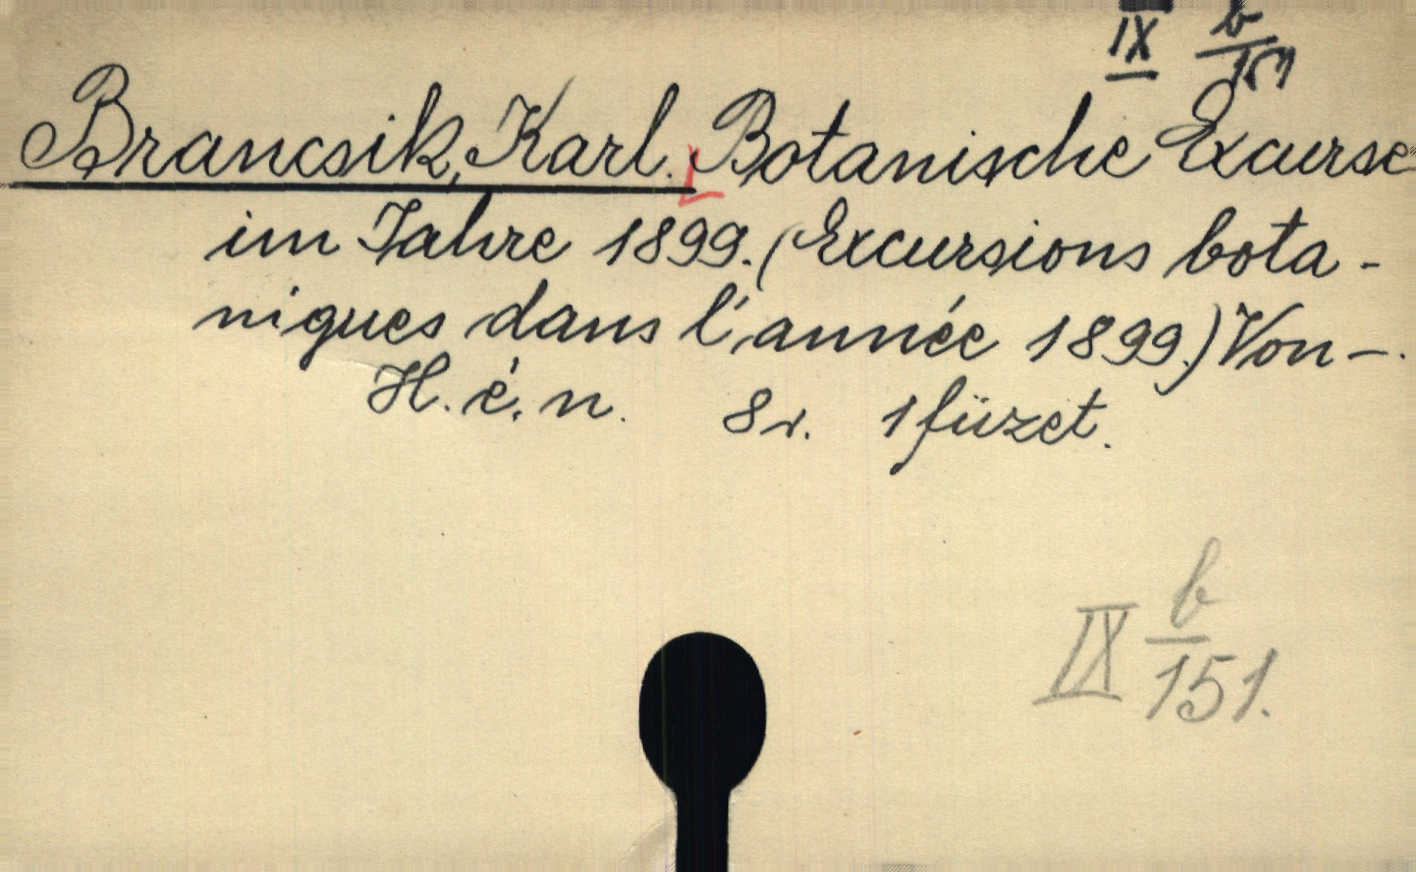 IX b/151
Brancsik, Karl. Botanische Excurse
im Jahre 1899. (Excursions bota-
niques dans l'année 1899.) Von -.
H. é. n. 8r. 1 füzet.
IX b/151.